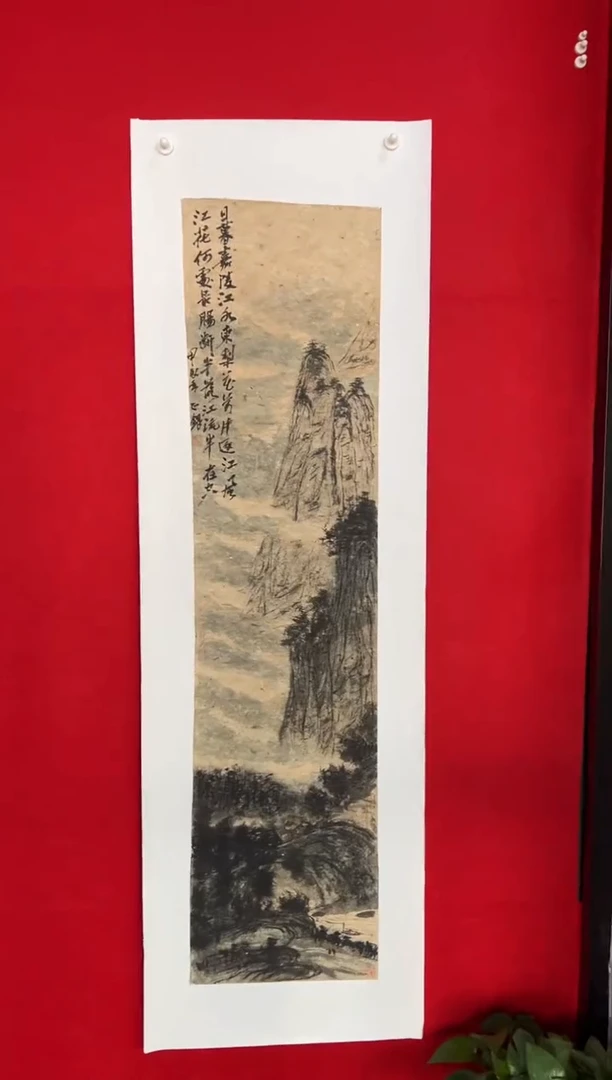 日暮嘉陵江水東梨花萬片逐江風
江花何處最腸斷半落江流半在空